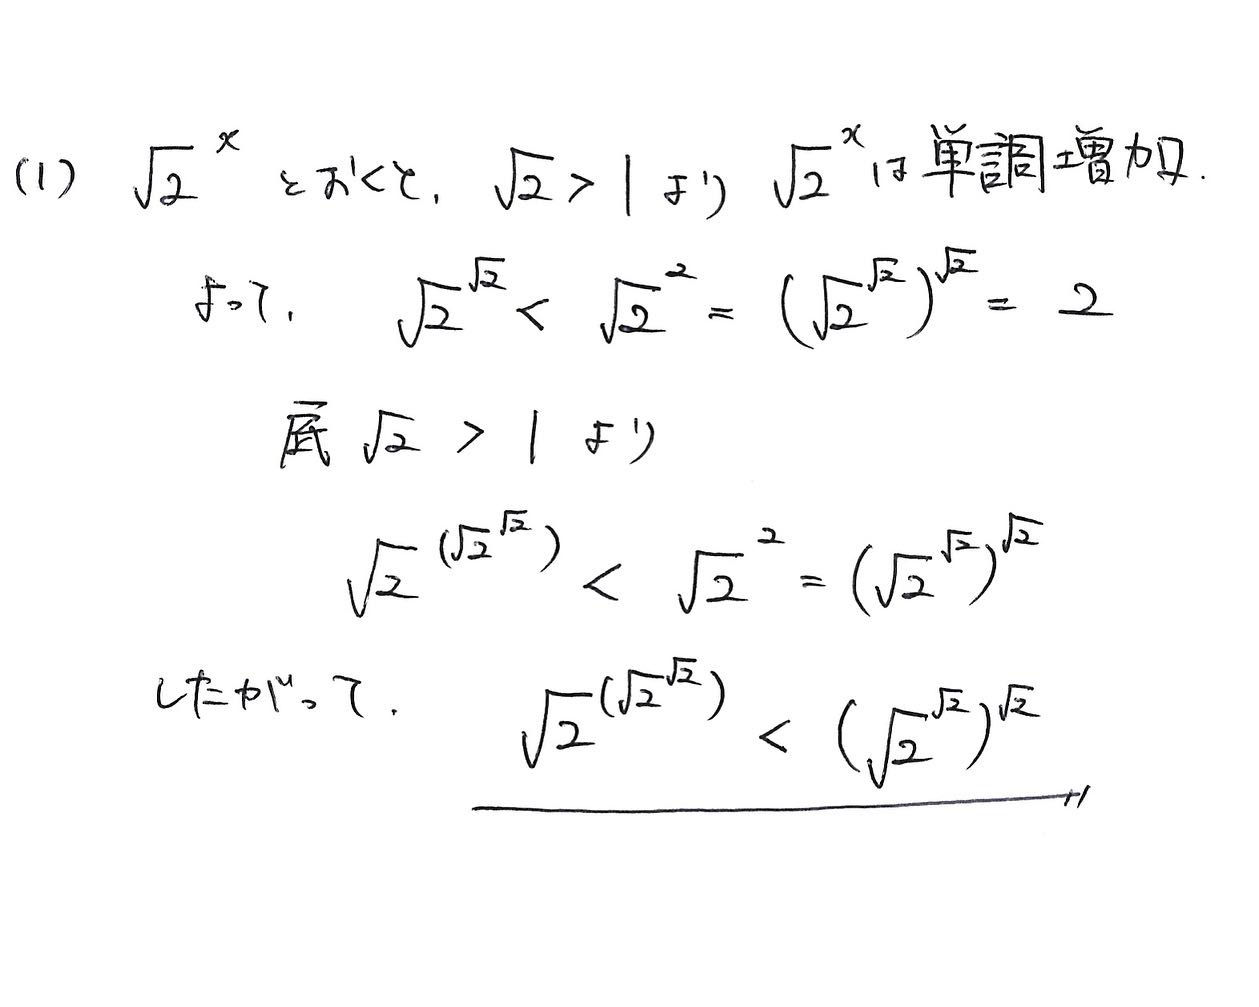 (1) √2^x とおくと, √2 > 1 より √2^x は単調増加.
よって, √2^√2 < √2^2 = (√2^√2)^√2 = 2
底 √2 > 1 より
√2^(√2^√2) < √2^2 = (√2^√2)^√2
したがって, √2^(√2^√2) < (√2^√2)^√2